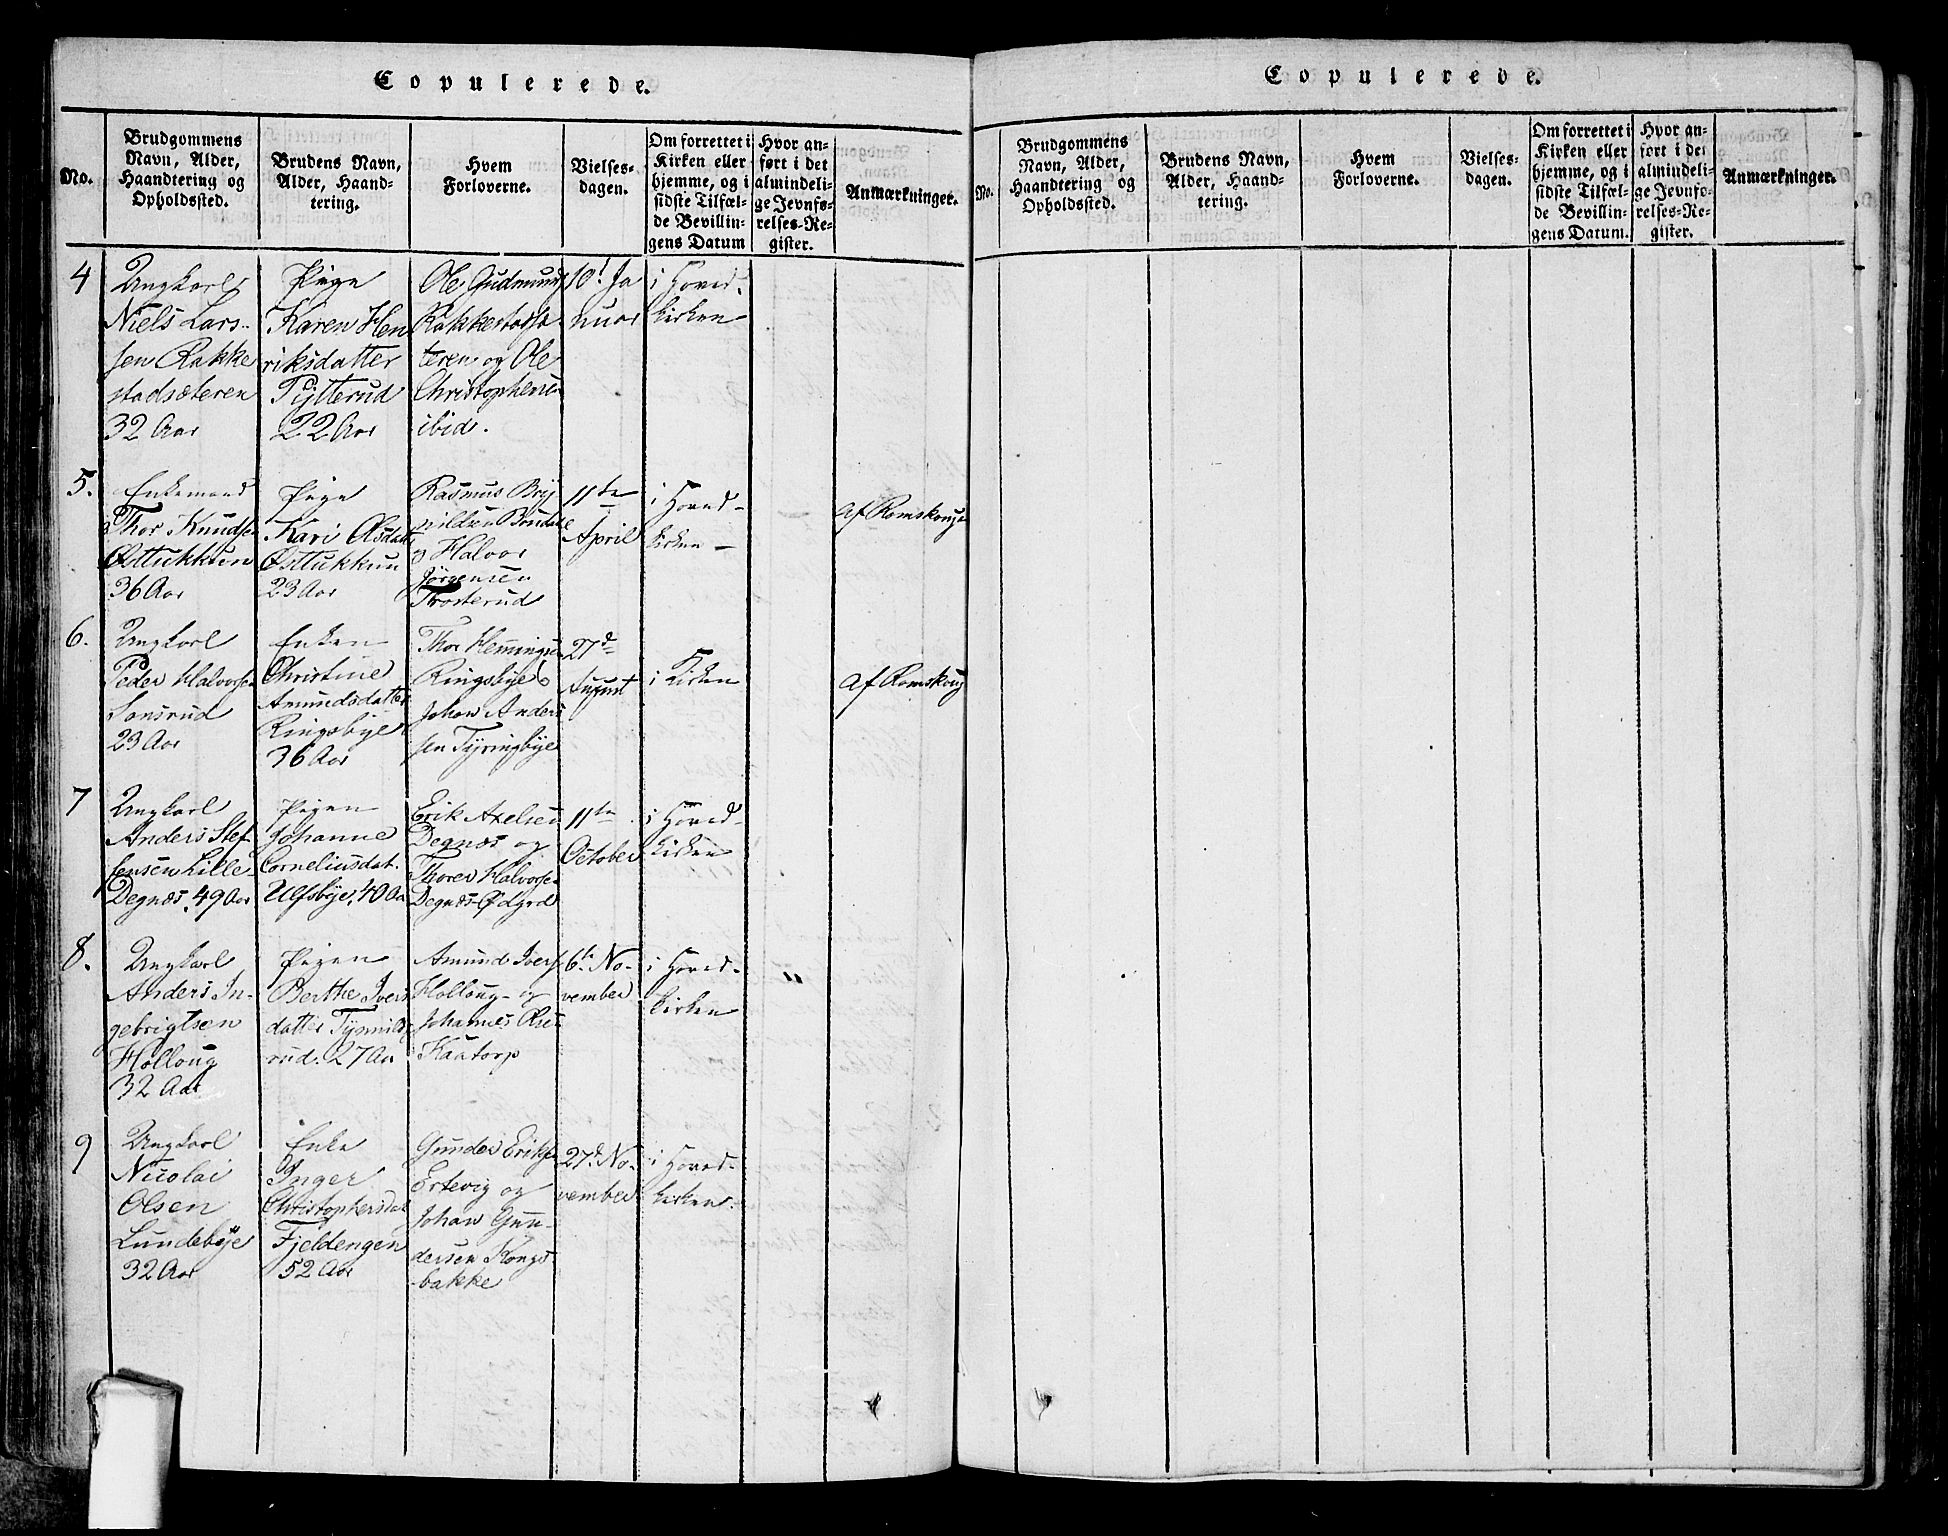 Copulerede.
No.
Brudgommens
Navn, Alder,
Haandtering og
Opholdssted.
Brudens Navn,
Alder, Haand-
tering.
Hvem
Forloverne.
Vielses-
dagen.
Om forrettet i
Kirken eller
hjemme, og i
sidste Tilfæl-
de Bevillin-
gens Datum
Hvor an-
ført i det
almindeli-
ge Jevnfø-
relses-Re-
gister.
Anmærkninger.
4
Ungkarl
Niels Lars-
sen Rakke
stadsæteren
32 Aar
Pige
Karen Hen
riksdatter
Tytterud
22 Aar
Ole Gudmunds
Rakkestadsæ
teren og Ole
Christophersen
ibid.
10. Ja
nuar
i Hoved-
kirken
5.
Enkemand
Thor Knudsen
Østtukkun
36 Aar
Pige
Kari Olsdatt
Østtukkun
23 Aar
Rasmus Bryn
ildsen
og Halvor
Jørgensen
Trosterud
11te
April
i Hoved-
kirken
af Romskoug
6.
Ungkarl
Peder Halvorsen
Sonsrud
23 Aar
Enken
Christine
Amundsdatter
Ringsbye
36 Aar
Thor Hemmings
Ringsbye &
Johan Anders
sen Tyringbye
27d
August
i Kirken
af Romskoug
7
Ungkarl
Anders Stef
fensen Lille
Degnæs, 49 Aar
Pigen
Johanne
Corneliusdat.
Ulfsbye, 40 Aa
Erik Axelsen
Degnæs og
Thorer Halvorse
Degnæs-Ødgrd
11te
October
i Hoved-
kirken
8.
Ungkarl
Anders In-
gebrigtsen
Holloug
32 Aar
Pigen
Berthe Ivers
datter
rud. 27 Aa
Amund Ivers
Holloug og
Johannes
Kaatorp
6te No-
vember
i Hoved-
kirken
"
9
Ungkarl
Nicolai
Olsen
Lundebye
32 Aar
Enke
Inger
Christophersdat
Fjeldengen
52 Aar
Gunder Eriksen
Ertevig og
Johan Gun-
dersen Kongs
-bakke
27d No-
vember
i Hoved-
kirken.
Copulerede.
No.
Brudgommens
Navn, Alder,
Haandtering og
Opholdssted.
Brudens Navn,
Alder, Haand-
tering.
Hvem
Forloverne.
Vielses-
dagen.
Om forrettet i
Kirken eller
hjemme, og i
sidste Tilfæl-
de Bevillin-
gens Datum.
Hvor an-
ført i det
almindeli-
ge Jevnfø-
relses-Re-
gister.
Anmærkninger.